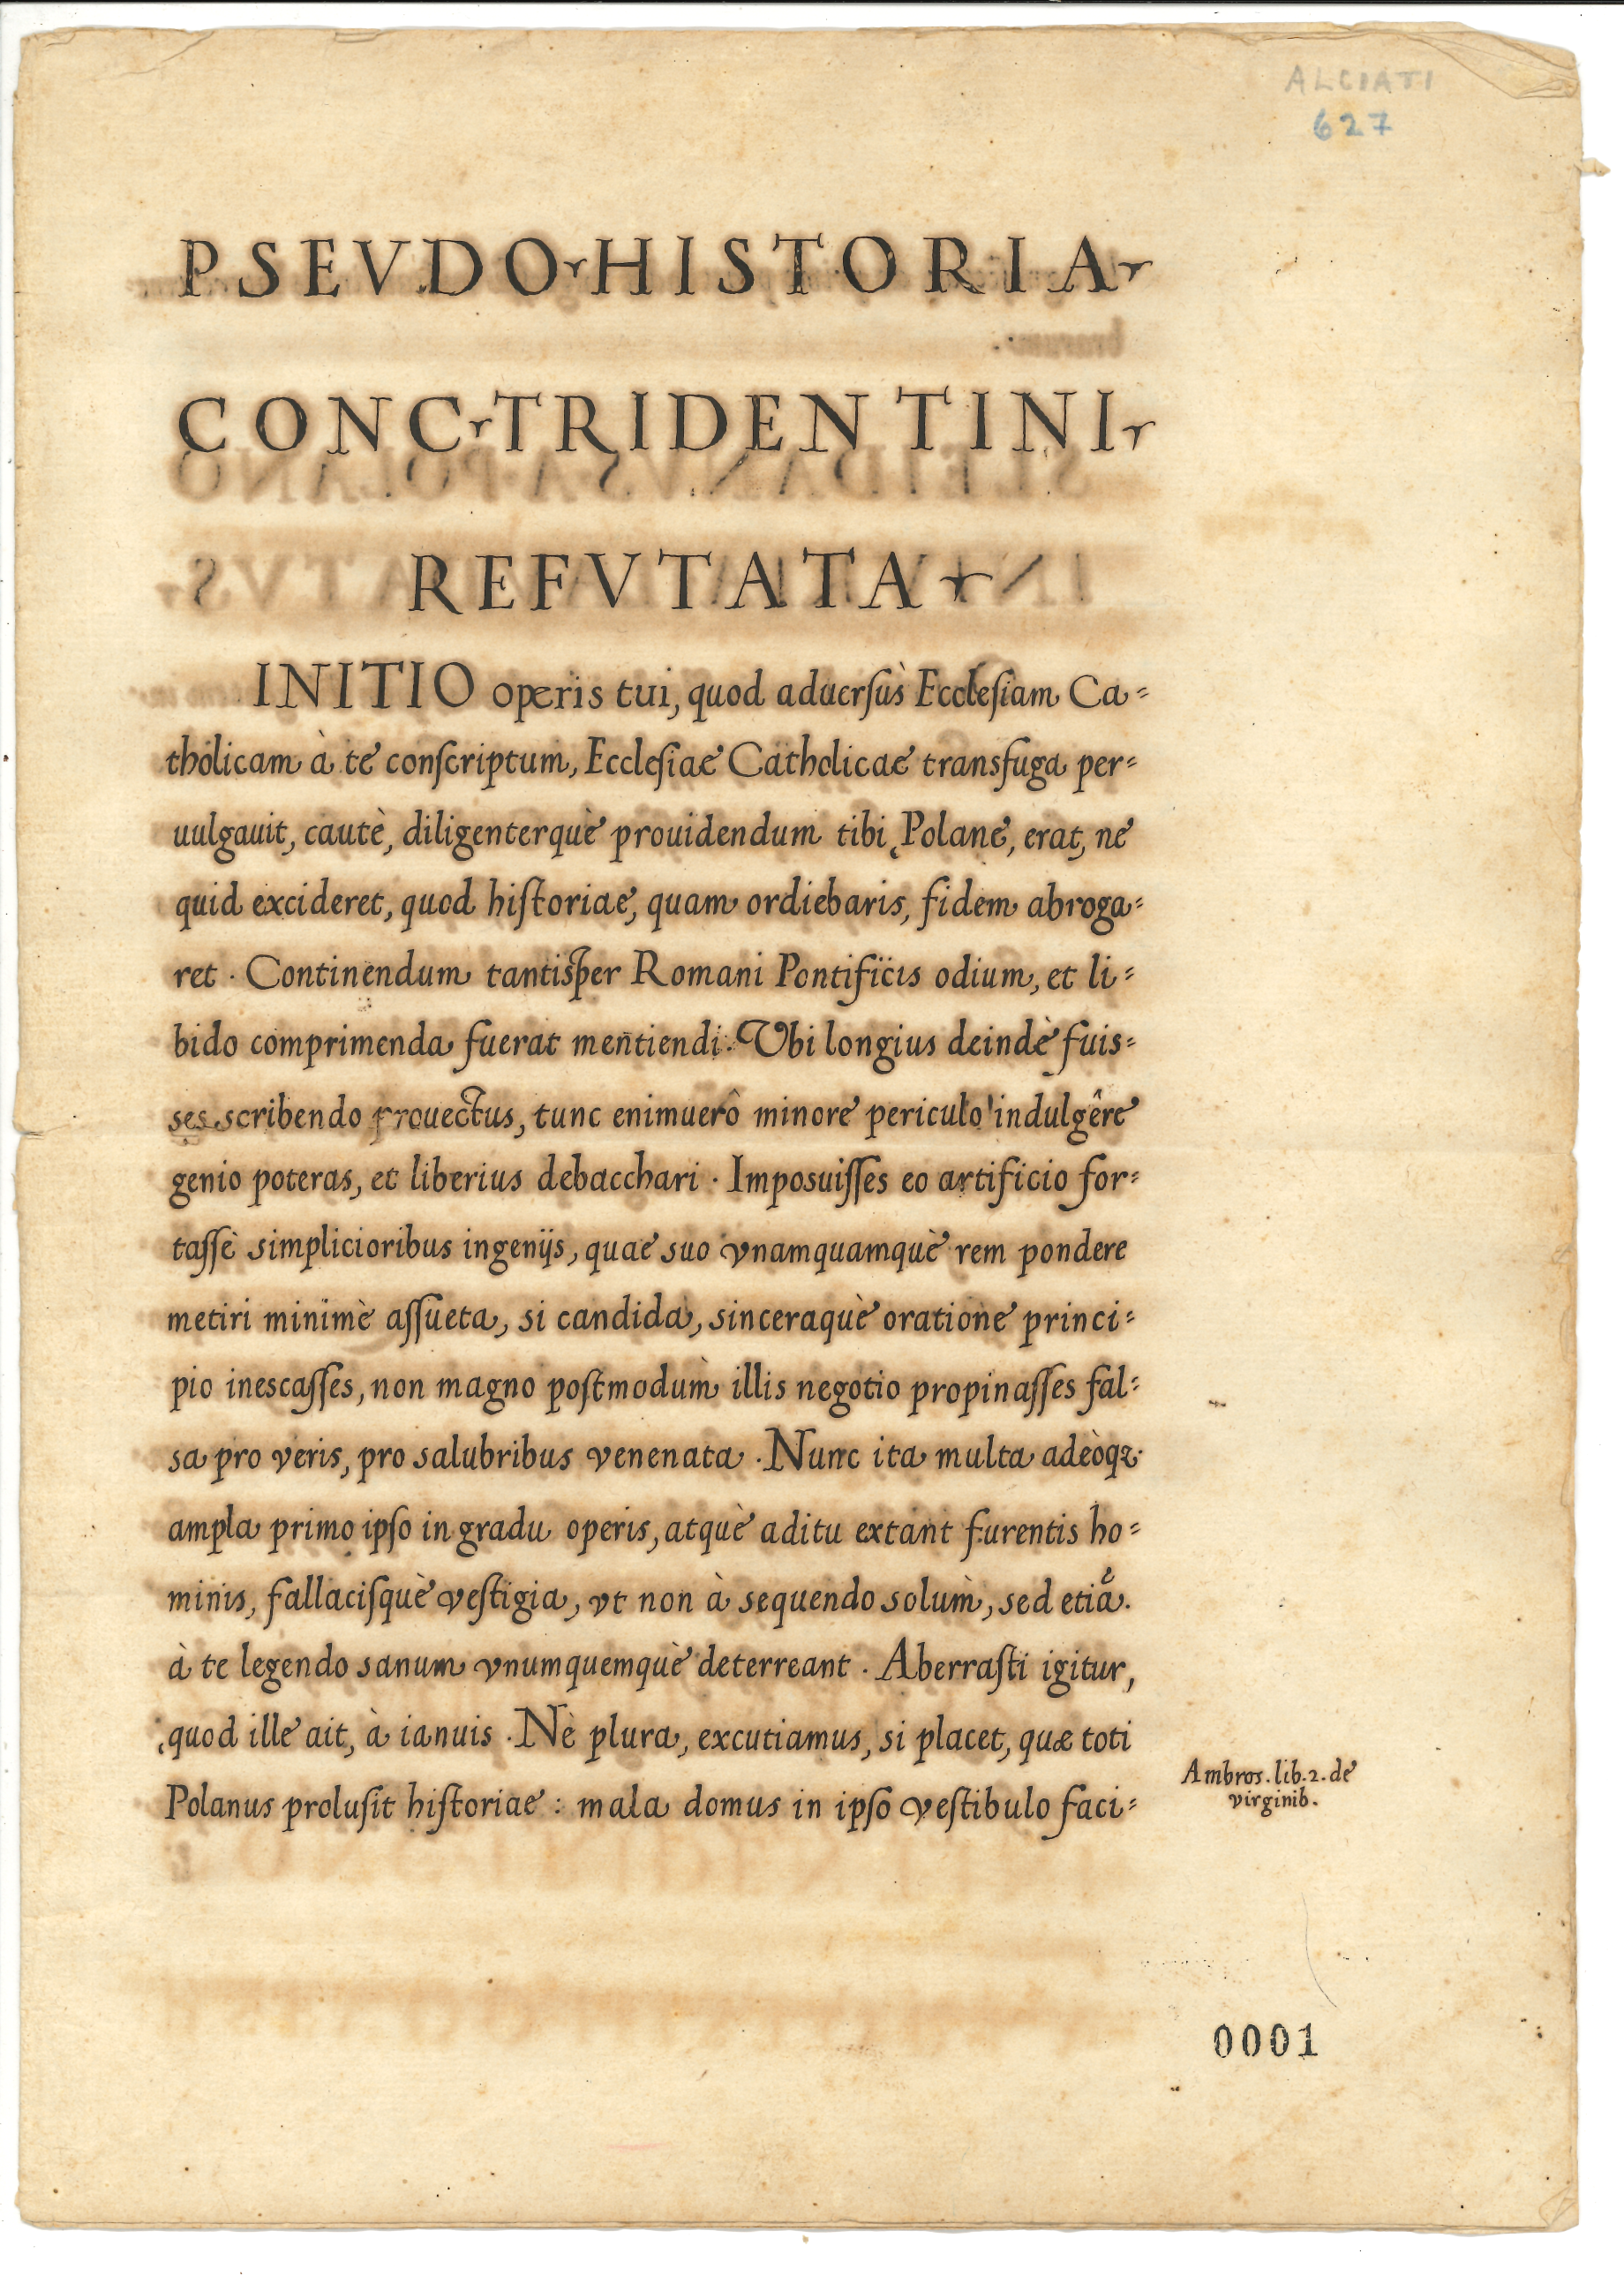 ALCIATI
627
PSEVDO HISTORIA
CONC TRIDENTINI
REFVTATA
INITIO operis tui, quod aduersùs Ecclesiam Ca=
tholicam à te conscriptum, Ecclesiae Catholicae transfuga per=
uulgauit, cautè, diligenterquè prouidendum tibi, Polane, erat, ne
quid excideret, quod historiae, quam ordiebaris, fidem abroga=
ret. Continendum tantisper Romani Pontificis odium, et li=
bido comprimenda fuerat mentiendi. Vbi longius deindè fuis=
ses scribendo prouectus, tunc enimuerò minore periculo indulgêre
genio poteras, et liberius debacchari. Imposuisses eo artificio for=
tassè simplicioribus ingenijs, quae suo vnamquamquè rem pondere
metiri minimè assueta, si candida, sinceraquè oratione princi=
pio inescasses, non magno postmodùm illis negotio propinasses fal=
sa pro veris, pro salubribus venenata. Nunc ita multa adeòqꝫ
ampla primo ipso in gradu operis, atquè aditu extant furentis ho=
minis, fallacisquè vestigia, vt non à sequendo solùm, sed etiã
à te legendo sanum vnumquemquè deterreant. Aberrasti igitur,
quod ille ait, à ianuis. Nè plura, excutiamus, si placet, quæ toti
Polanus prolusit historiae: mala domus in ipso vestibulo faci=
Ambros. lib. 2. de
virginib.
0001